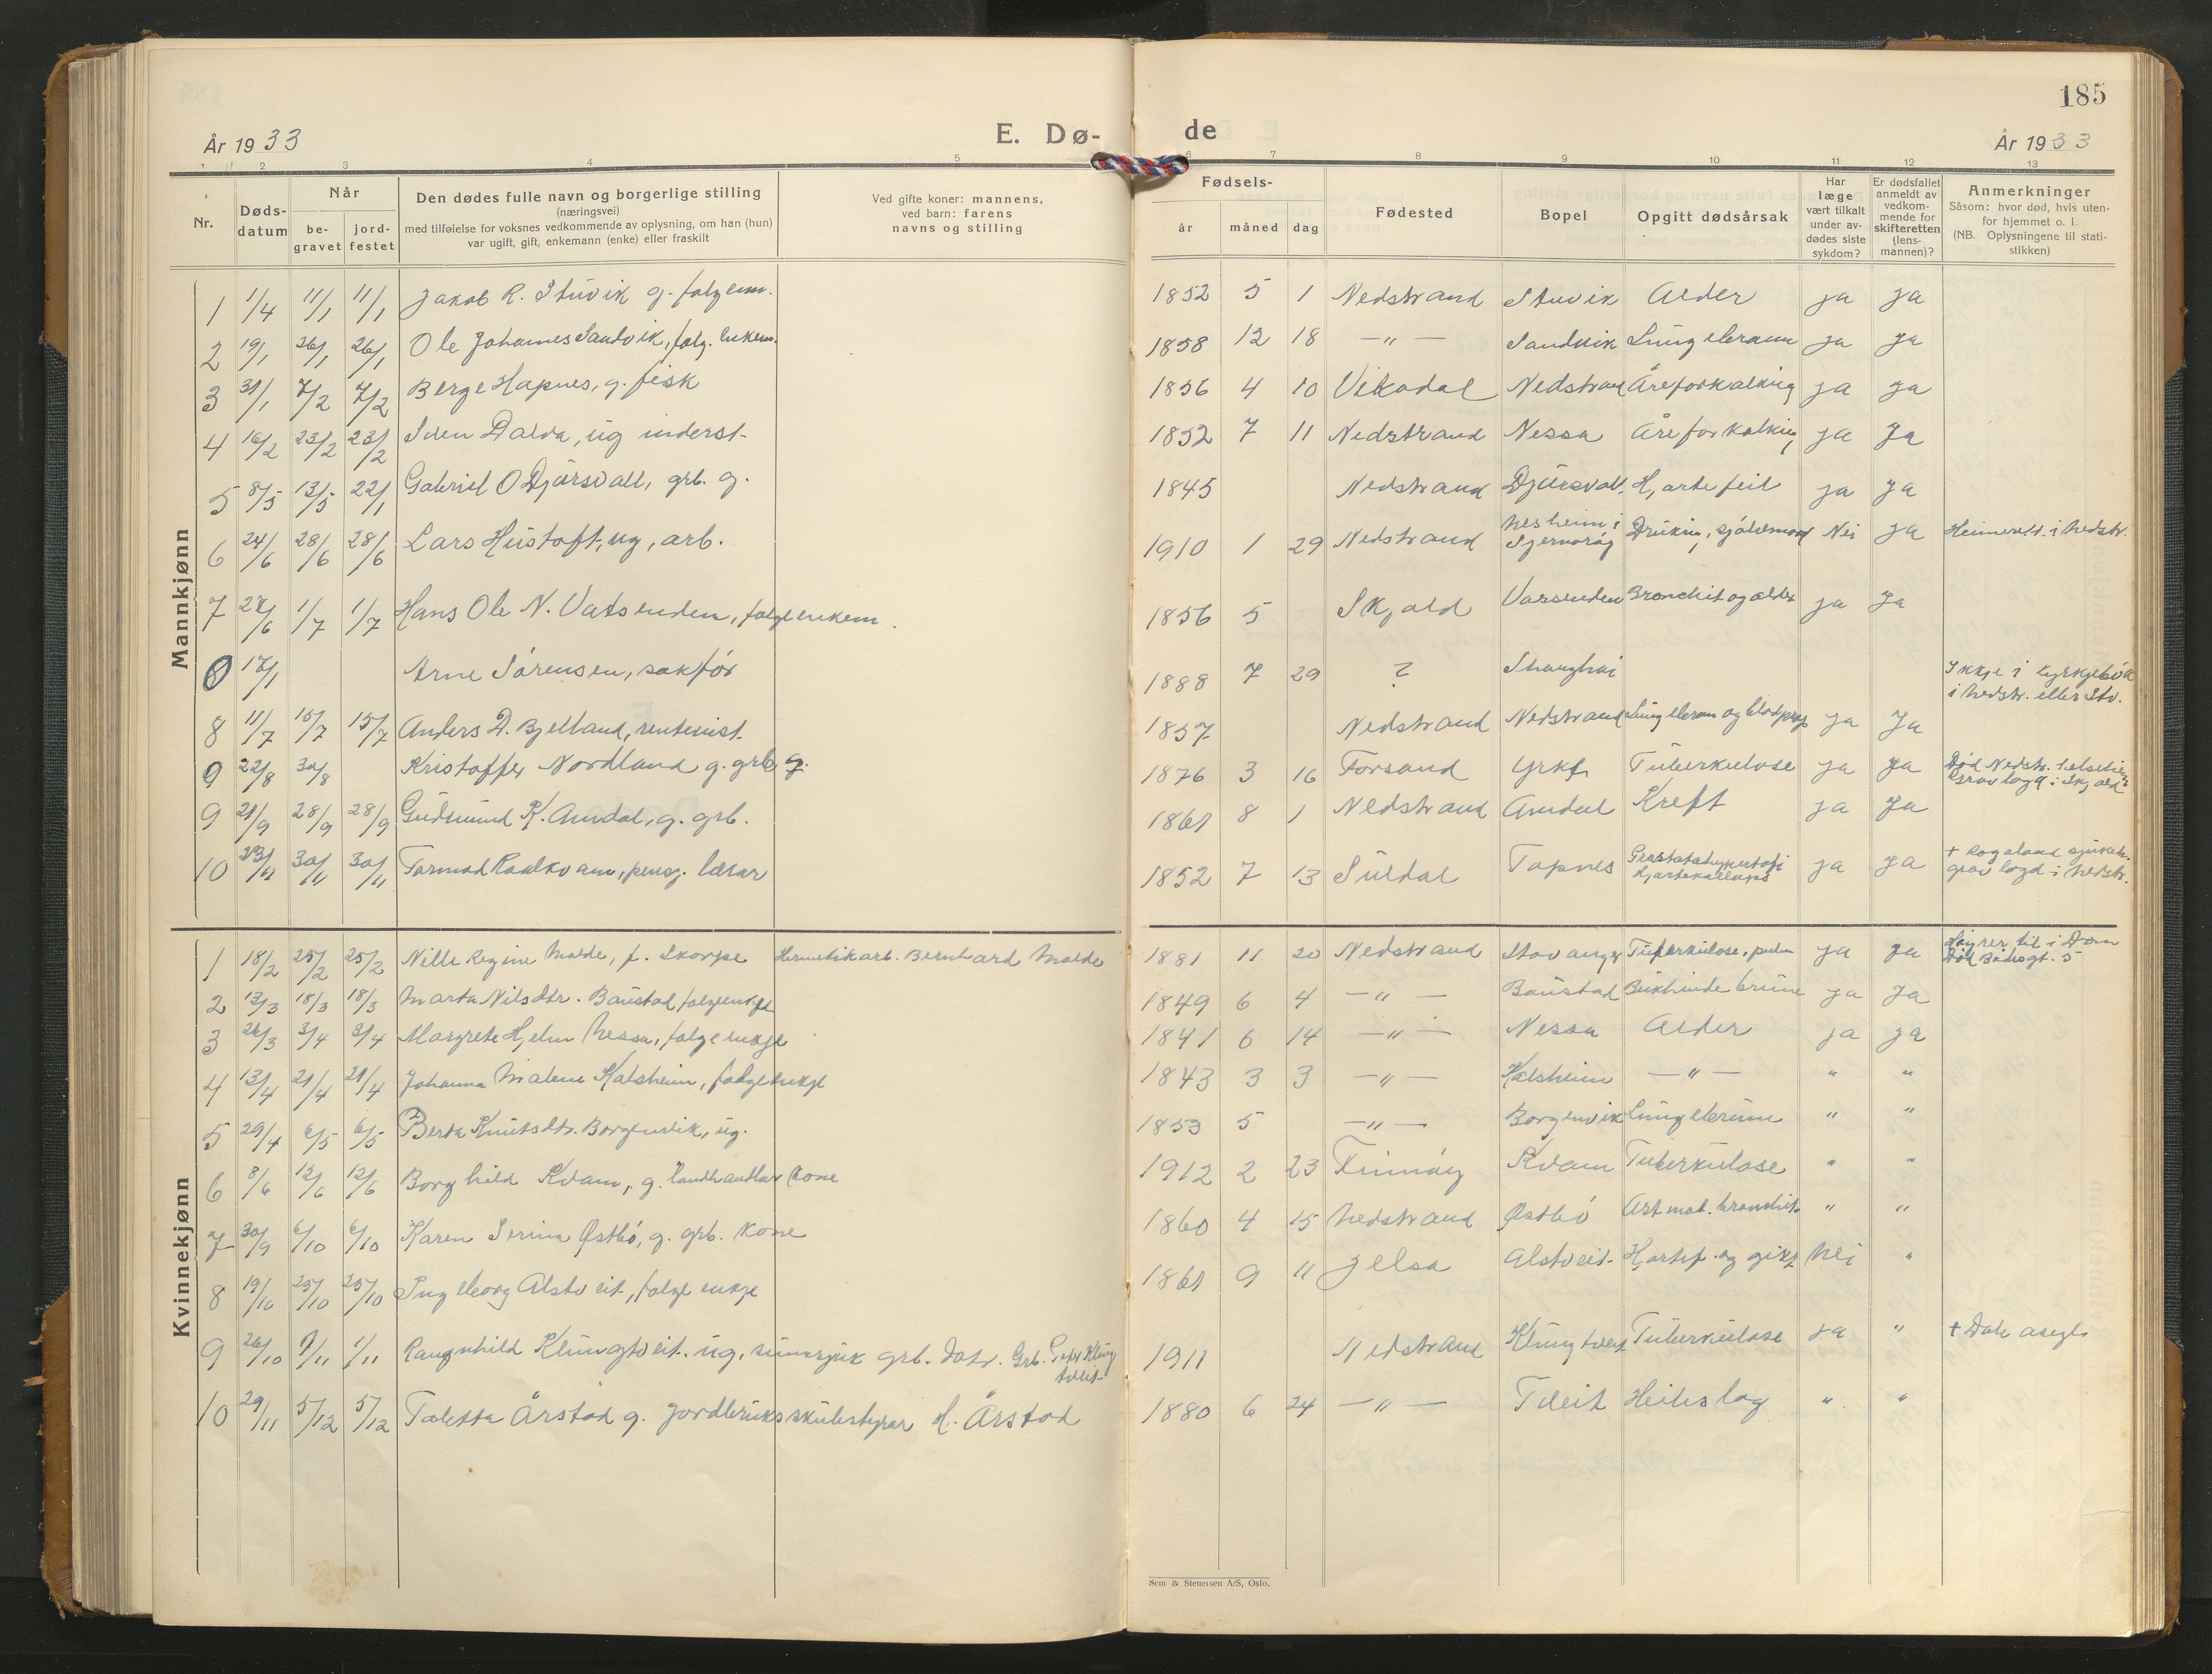 185
År 1933
E. Dø-
de
År 1933
1 2 3 4 5 6 7 8 9 10 11 12 13
Nr.
Døds-
datum
Når
be-
gravet
jord-
festet
Den dødes fulle navn og borgerlige stilling
(næringsvei)
med tilføielse for voksnes vedkommende av oplysning, om han (hun)
var ugift, gift, enkemann (enke) eller fraskilt
Ved gifte koner: mannens,
ved barn: farens
navns og stilling
Fødsels-
år måned dag
Fødested
Bopel
Opgitt dødsårsak
Har
læge
vært tilkalt
under av-
dødes siste
sykdom?
Er dødsfallet
anmeldt av
vedkom-
mende for
skifteretten
(lens-
mannen)?
Anmerkninger
Såsom: hvor død, hvis uten-
for hjemmet o. l.
(NB. Oplysningene til stati-
stikken)
Mannkjønn
1 1/4 11/1 11/1 Jakob R. Stuvik g. folgem. 1852 5 1 Nedstrand Stuvik Alder ja ja
2 19/1 26/1 26/1 Ole Johannes Sandvik, folg. enkem. 1858 12 18 —"— Sandvik ja ja
3 31/1 7/2 7/2 Berge Hapnes, g. fisk 1856 4 10 Vikadal Nedstrand Åreforkalking ja ja
4 16/2 23/2 23/2 Sven Dalva, ug inderst. 1852 7 11 Nedstrand Nessa Åreforkalking ja ja
5 8/5 13/5 22/1 Gabriel O Djursvoll, grb. g. 1845 Nedstrand Djursvoll, Hjartefeil ja ja
6 24/6 28/6 28/6 Lars Hustoft, ug, arb. 1910 1 29 Nedstrand Nesheim i Sjernarøy Drukn, sjølvmord Nei ja i Nedstr.
7 27/6 1/7 1/7 Hans Ole N. Vatsenden, folgeenkem. 1856 5 Skjold Vatsenden Bronchit og alder ja ja
8 17/1 Arne Sørensen, sakfør 1888 7 29 ? Shanghai Ikkje i kyrkjebók
i Nedstr. eller Stv.
8 11/7 15/7 15/7 Anders D. Bjelland, rentenist. 1857 Nedstrand Nedstrand ja Ja
9 22/8 30/8 Kristoffer Nordland g. grb g. 1876 3 16 Forsand Yrkf. Tuberkulose ja ja Død Nedstr.
Gravlagd i Skjold
9 21/9 28/9 28/9 Gudmund K. Amdal, g. grb. 1861 8 1 Nedstrand Amdal Kreft ja ja
10 30/11 30/11 Tormod Raalkvam, pensj. lærar 1852 7 13 Suldal Tapnes ja ja + Rogaland sjukeh.
grav lagd i Nedstr.
Kvinnekjønn
1 18/2 25/2 25/2 Nille Regine Molde, f. Skorpe Hermetikarb. Bernhard Molde 1881 11 20 Nedstrand Stavanger Tuberkulose, pulm ja ja
2 13/3 18/3 18/3 Marta Nilsdtr. Baustad folgeenkje 1849 6 4 —"— Baustad ja ja
3 26/3 3/4 3/4 Margrete Hjelm Nessa, folgeenkje 1841 6 14 —"— Nessa Alder ja ja
4 13/4 21/4 21/4 Johanna Malene Kalsheim, folgeenkje 1843 3 3 —"— Kalsheim —"— " "
5 29/4 6/5 6/5 Berta Knutsdtr. Borgenvik, ug. 1853 5 —"— Borgenvik " "
6 8/6 12/6 12/6 Borghild Kvam, g. landhandlar kone 1912 2 23 Finnøy Kvam Tuberkulose " "
7 30/9 6/10 6/10 Karen Serina Østbó, g. grb. kone 1860 4 15 Nedstrand Østbó Astmat. bronchit. " "
8 19/10 25/10 25/10 Ingeborg Alstveit, folge enkje 1861 9 11 Jelsa Alstveit Hjartef. og gikt Nei "
9 26/10 1/11 1/11 Rangnhild Klungtveit. ug. sinnsjuk grb. dotr. Grb. Peder Klung
tveit 1911 Nedstrand Klungtveit Tuberkulose ja "
10 29/11 5/12 5/12 Taletta Årstad g. jordbruksskulestyrar H. Årstad 1880 6 24 —"— Tveit Heileslag " "
Sem & Stenersen A/S, Oslo.